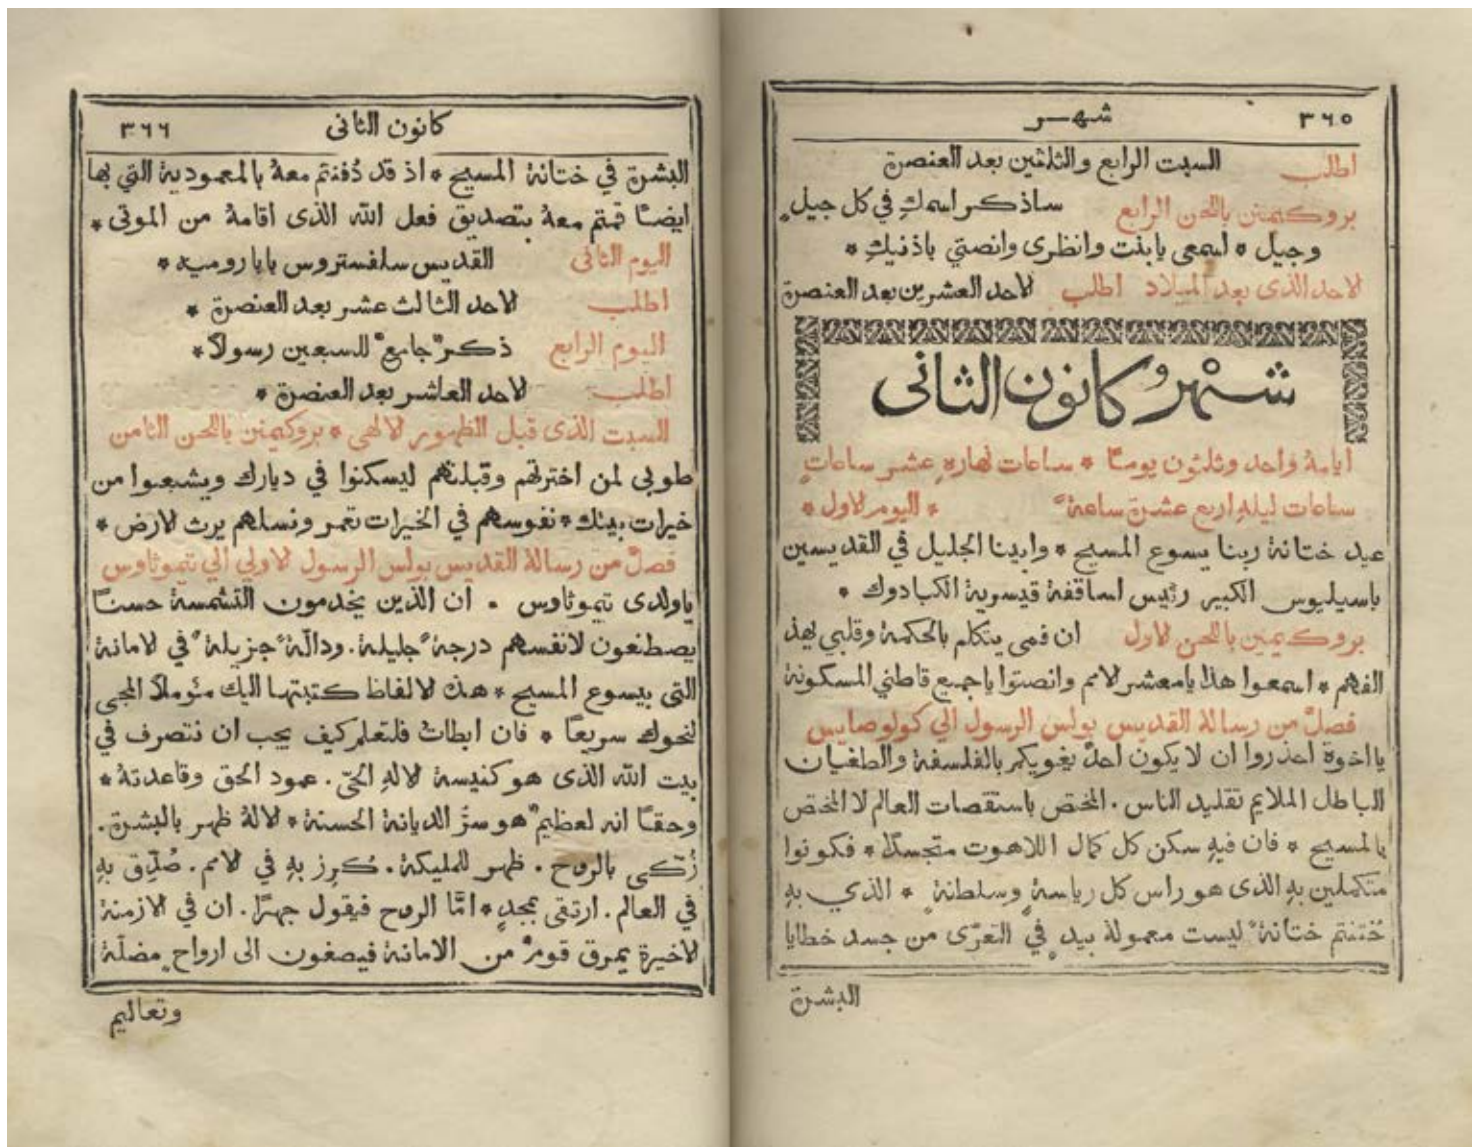 ٣٦٥ شهر
اطلب السبت الرابع والثلثين بعد العنصرة
بروكيمنن باللحن الرابع ساذكر اسمكِ في كل جيلٍ
وجيل * اسمعى يابنت وانظرى وانصتي باذنيكِ *
لاحد الذى بعد الميلاد اطلب لاحد العشرين بعد العنصرة
شهر كانون الثانى
ايامهُ واحد وثلثون يومـًا * ساعات نهارهِ عشر ساعاتٍ
ساعات ليلهِ اربع عشرة ساعةً * اليوم الاول *
عيد ختانة ربنا يسوع المسيح * وابينا الجليل في القديسين
باسيليوس الكبير رئيس اساقفة قيسرية الكبادوك *
بروكيمين باللحن لاول ان فمى يتكلم بالحكمة وقلبي يهذ
الفهم * اسمعوا هذا يامعشر لامم وانصتوا ياجميع قاطني المسكونة
فصلٌ من رسالة القديس بولس الرسول الي كولوصايس
يا اخوة احذروا ان لا يكون احدٌ يغويكم بالفلسفة والطغيان
الباطل الملايم تقليد الناس . المختص باستقصات العالم لا المختص
بالمسيح * فان فيهِ سكن كل كمال اللاهوت متجسدًا * فكونوا
متكملين بهِ الذى هو راس كل رياسةٍ وسلطانةٍ * الذي بهِ
خُتنتم ختانةً ليست معمولة بيدٍ في التعرّى من جسد خطايا
البشرة
كانون الثانى ٣٦٦
البشرة في ختانة المسيح * اذ قد دُفنتم معهُ بالمعمودية التي بها
ايضـًا قمتم معهُ بتصديق فعل الله الذى اقامهُ من الموتى *
اليوم الثانى القديس سلفستروس بابا رومية *
اطلب لاحد الثالث عشر بعد العنصرة *
اليوم الرابع ذكرٌ جامعٌ للسبعين رسولًا *
اطلب لاحد العاشر بعد العنصرة *
السبت الذى قبل الظهور لالهى * بروكيمنن باللحن الثامن
طوبي لمن اخترتهم وقبلتهم ليسكنوا في ديارك ويشبعوا من
خيرات بيتك * نفوسهم في الخيرات تعمر ونسلهم يرث لارض *
فصلٌ من رسالة القديس بولس الرسول لاولي الي تيموثاوس
ياولدى تيموثاوس . ان الذين يخدمون التشمسة حسنـًا
يصطنعون لانفسهم درجةً جليلة . ودالّةً جزيلةً في لامانة
التى بيسوع المسيح * هذه لالفاظ كتبتها اليك مئوملًا المجى
لنحوك سريعـًا * فان ابطاتُ فلتعلم كيف يجب ان نتصرف في
بيت الله الذى هو كنيسة لالهِ الحيّ . عمود الحق وقاعدتهُ *
وحقـًا انه لعظيمٌ هو سرّ الديانة الحسنة * لالهُ ظهر بالبشرة .
زُكّى بالروح . ظهر للمليكة . كُرِز بهِ في لامم . صُدِّق بهِ
في العالم . ارتقى بمجدٍ * امَّا الروح فيقول جهرًا . ان في الازمنة
لاخيرة يمرق قومٌ من الامانة فيصغون الى ارواحٍ مضلّة
وتعاليم